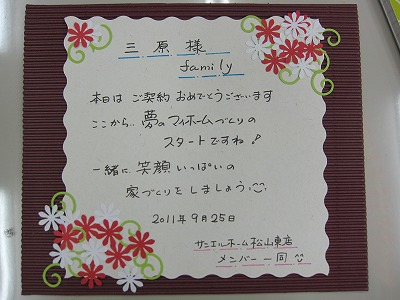 三原様
family
本日は ご契約 おめでとうございます
ここから.. 夢のマイホームづくりの
スタートですね!
一緒に 笑顔いっぱいの
家づくりをしましょう
2011年9月25日
サンエルホーム松山東店
メンバー一同